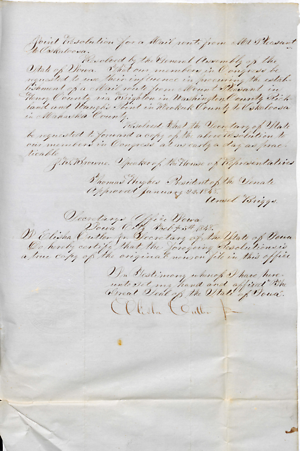 Joint Resolution for a Mail rout from Mt Pleasant
to Oskaloosa
Resolved by the General Assembly of the
State of Iowa That our members in Congress be
requested to use their influence in procuring the estab-
lishment of a Mail rout from Mount Pleasant in
Henry County via Brighton in Washington County Rich-
land and in Keokuk County to Oskaloosa
in Mahaska County
Resolved That the Secretary of State
be requested to forward a copy of the above resolution to
our members in Congress at as early a day as prac-
ticable
Speaker of the House of Representatives
Thomas Hughes President of the Senate
Approved January
Ansel Briggs
Secretarys Office Iowa
Iowa City
I Elisha Cutler Jr Secretary of the State of Iowa
do hereby certify that the foregoing Resolution is
a true copy of the original now on file in this office
In Testimony whereof I have here-
unto set my hand and affixed the
Great Seal of the State of Iowa
Elisha Cutler Jr